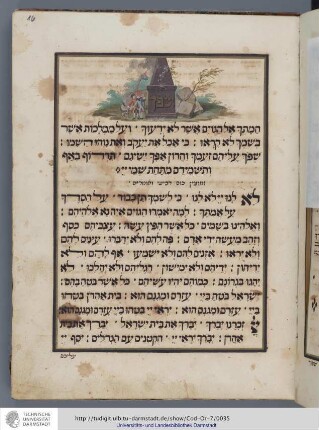 חמתך אל הגוים אשר לא ידעוך ׃ ועל ממלכות אשר
בשמך לא קראו ׃ כי אכל את יעקב ואת נוהו השמו ׃
שפך עליהם זעמך וחרון אפך ישיגם ׃ תרדוף באף
ותשמידם מתחת שמי ייי ׃
לא לנו יי לא לנו ׃ כי לשמך תן כבוד ׃ על חסדך
על אמתך ׃ למה יאמרו הגוים איה נא אלהיהם ׃
ואלהינו בשמים ׃ כל אשר חפץ עשה ׃ עצביהם כסף
וזהב מעשה ידי אדם ׃ פה להם ולא ידברו ׃ עינים להם
ולא יראו ׃ אזנים להם ולא ישמעו ׃ אף להם ולא
יריחון ׃ ידיהם ולא ימישון ׃ רגליהם ולא יהלכו ׃ לא
יהגו בגרונם ׃ כמוהם יהיו עשיהם ׃ כל אשר בטח בהם
ישראל בטח ביי ׃ עזרם ומגנם הוא ׃ בית אהרן בטחו
ביי ׃ עזרם ומגנם הוא ׃ יראי יי בטחו ביי עזרם ומגנם הוא
יי זכרנו יברך ׃ יברך את בית ישראל ׃ יברך את בית
אהרן ׃ יברך יראי יי ׃ הקטנים עם הגדלים ׃ יסף יי
עליכם
TECHNISCHE
UNIVERSITÄT
DARMSTADT
http://tudigit.ulb.tu-darmstadt.de/show/Cod-Or-7/0035
Universitäts- und Landesbibliothek Darmstadt